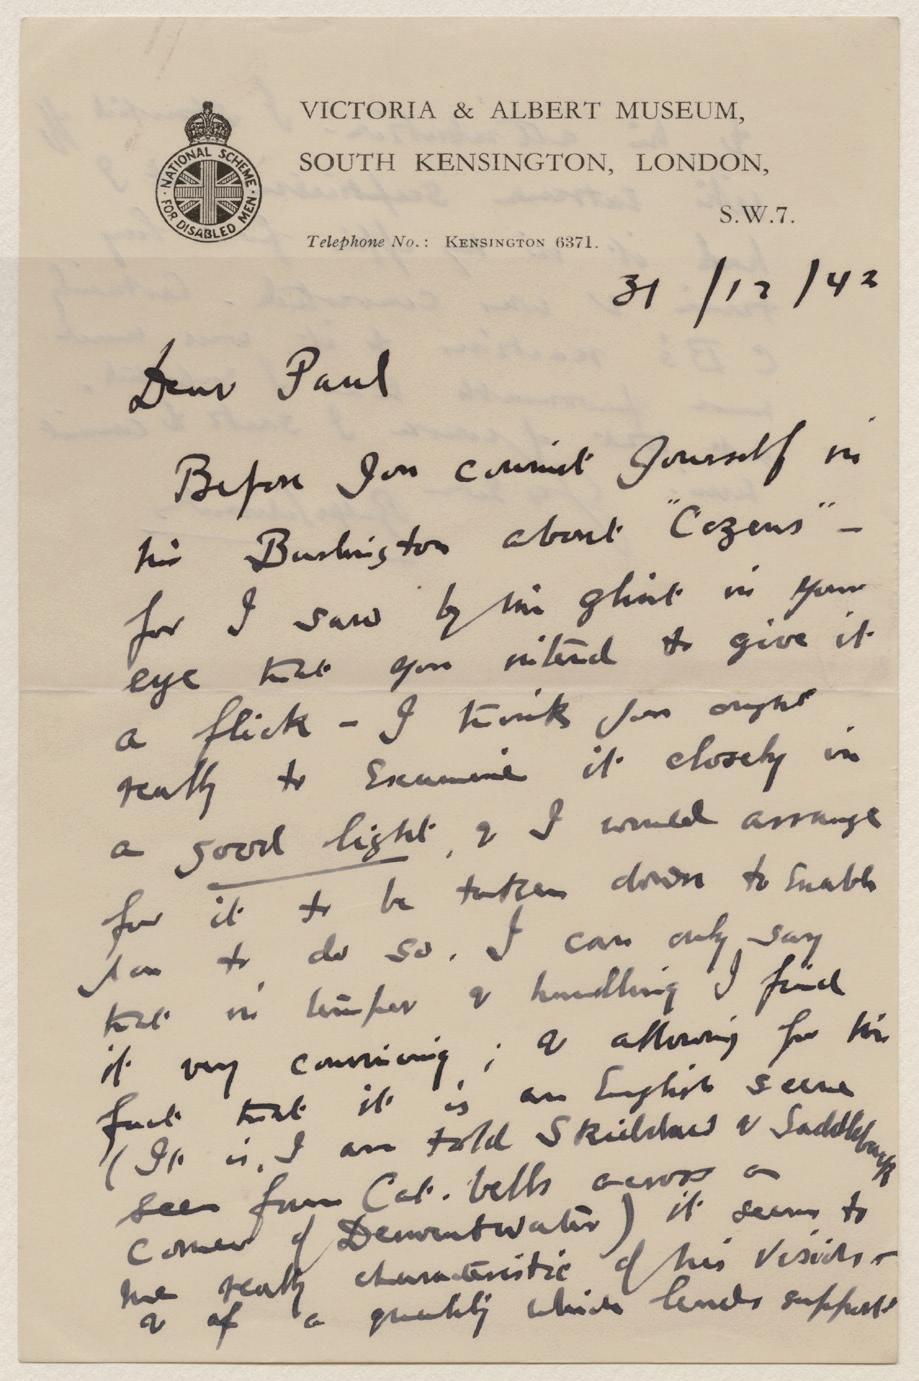 VICTORIA & ALBERT MUSEUM,
SOUTH KENSINGTON, LONDON,
S.W.7.
NATIONAL SCHEME
FOR DISABLED MEN
Telephone No.: KENSINGTON 6371.
31/12/42
Dear Paul
Before you commit yourself in
the Burlington about "Cozens" –
for I saw by the glint in your
eye that you intend to give it
a flick – I think you ought
really to examine it closely in
a good light, & I would arrange
for it to be taken down to enable
you to do so. I can only say
that in temper & handling I find
it very convincing; & allowing for the
fact that it is an English scene
(It is, I am told Skiddaw & Saddleback
seen from Cat. bells across a
corner of Derwentwater) it seems to
me really characteristic of his vision –
& of a quality which lends support